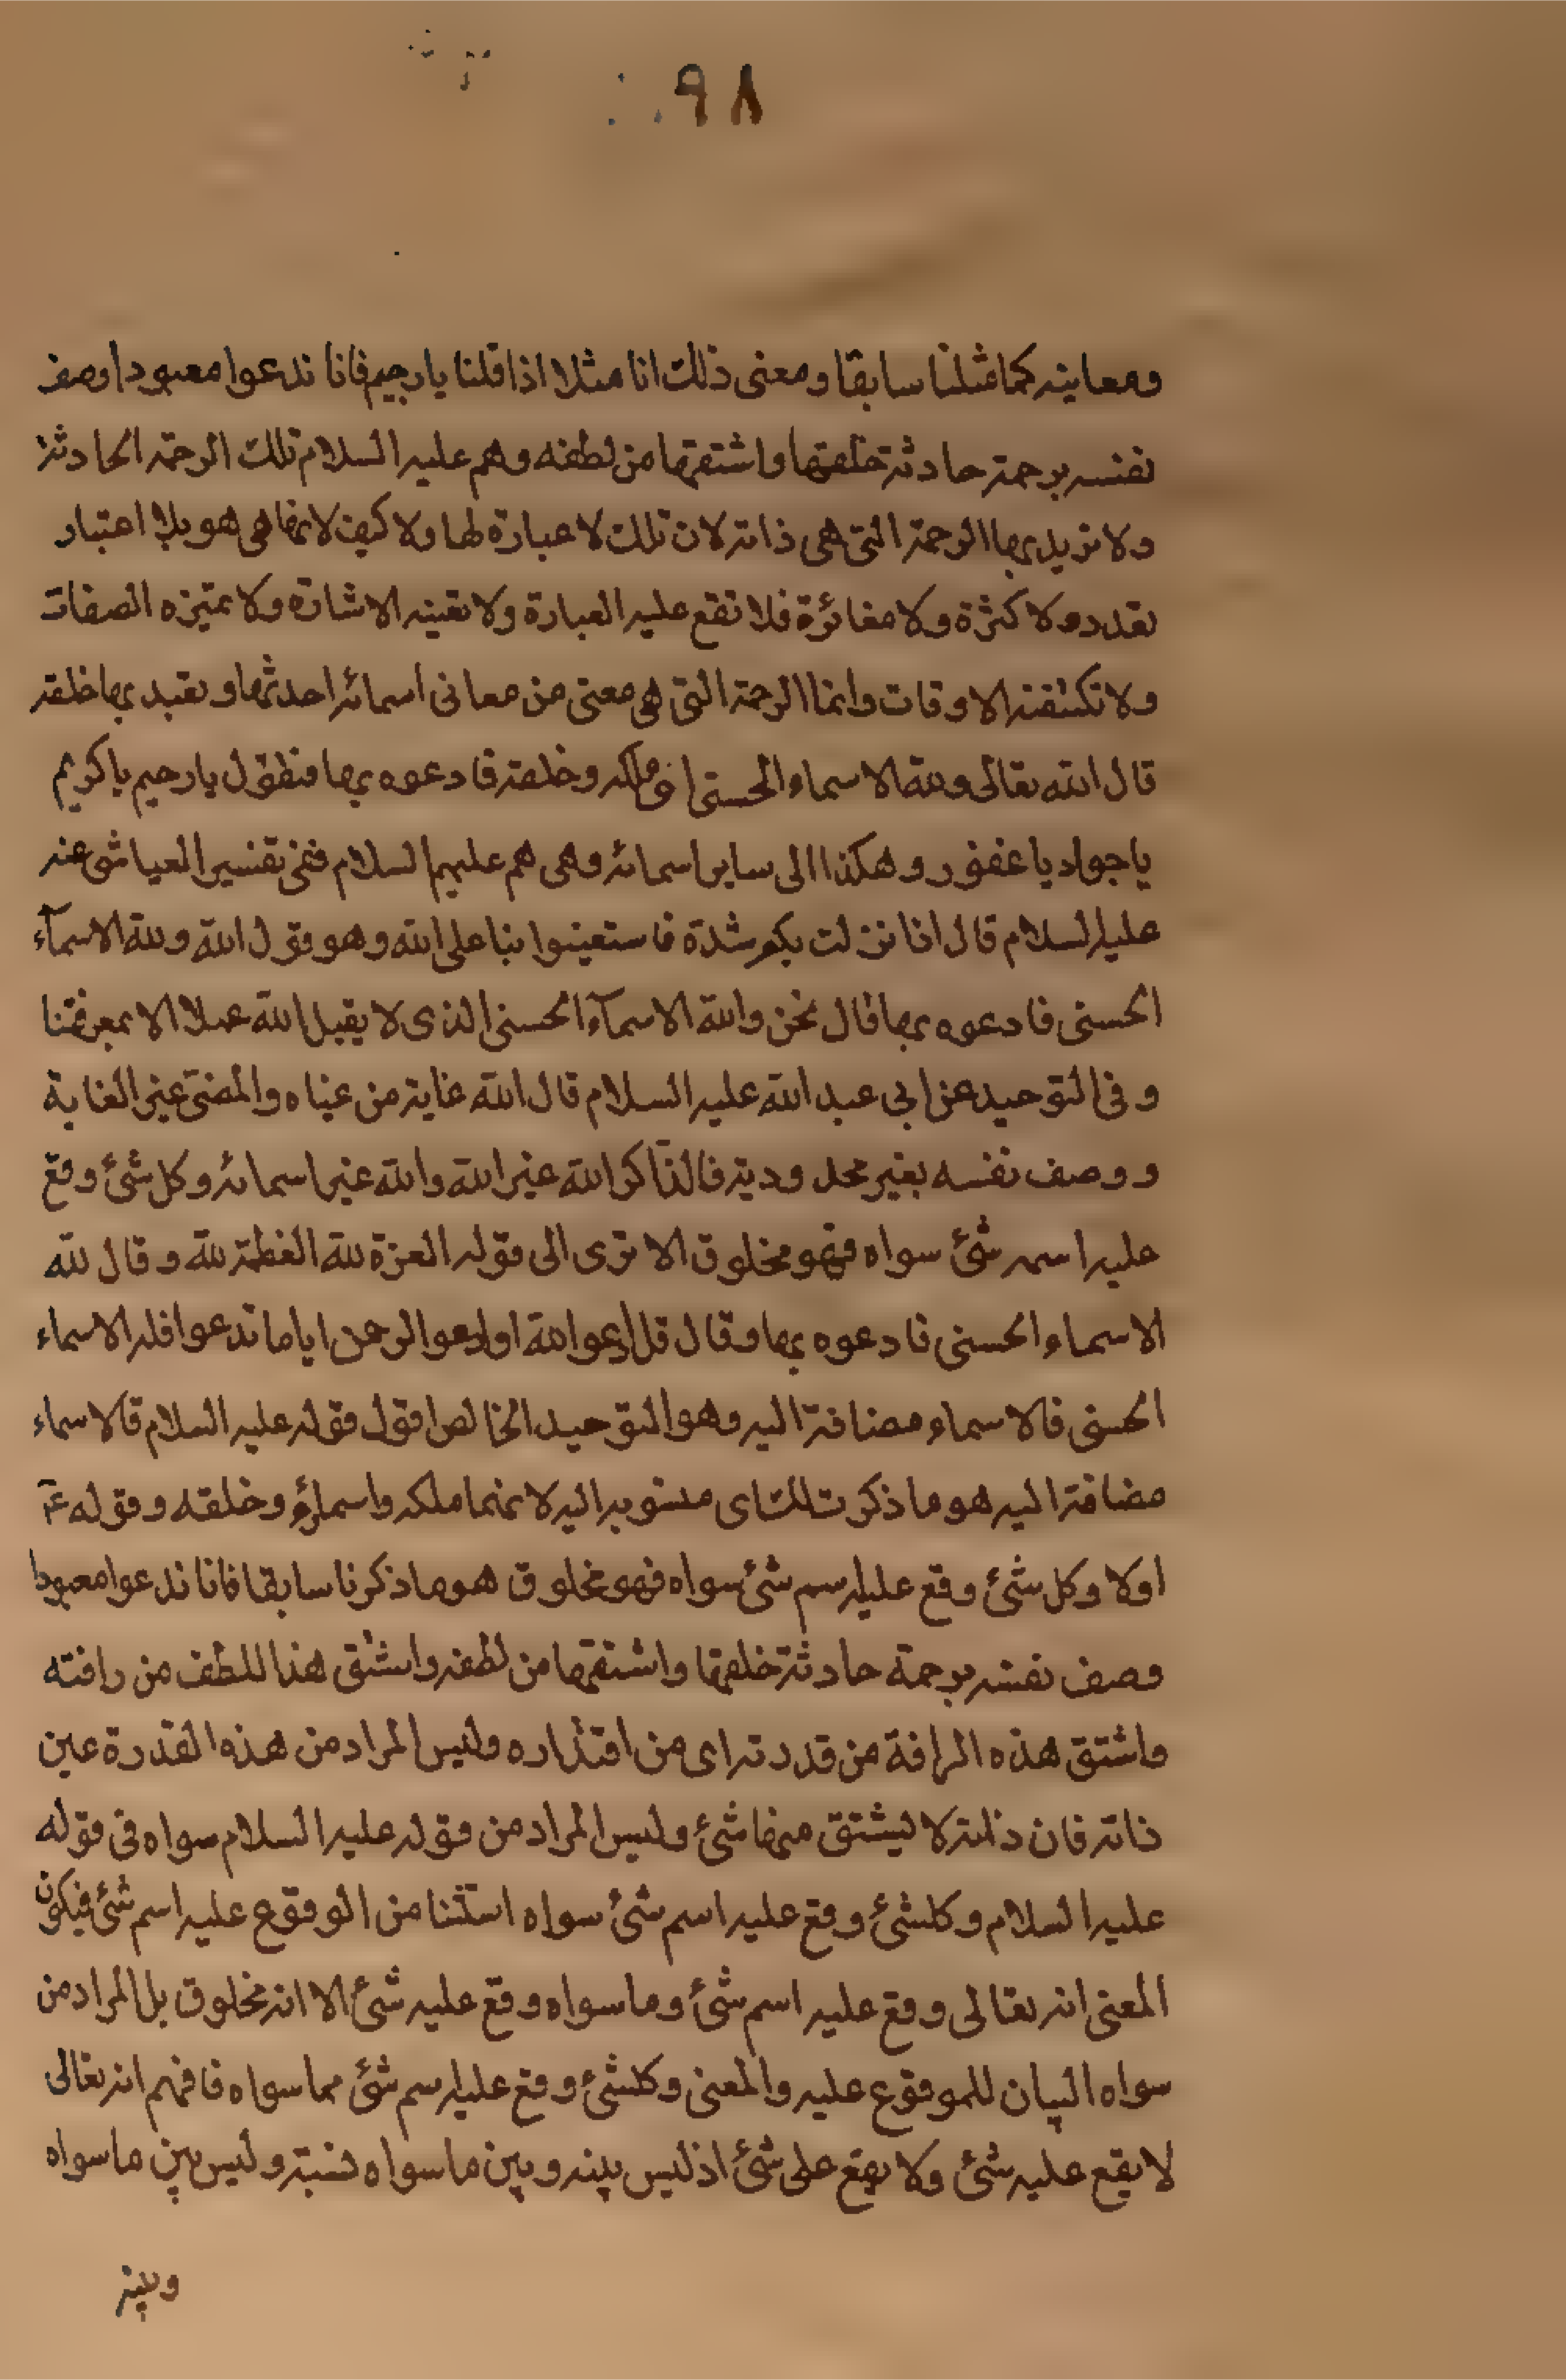 ٩٨
ومعانيه كما مثلنا سابقا ومعنى ذلك انا مثلا اذا قلنا يا رحيم فانا ندعوا معبودا وصف
نفسه برحمة حادثة خلقها واشتقها من لطفه وهم عليه السلام تلك الرحمة الحادثة
ولا نريد بها الرحمة التى هى ذاته لان تلك لا عبارة لها ولا كيف لانها هى هو بلا اعتبار
تعدد ولا كثرة ولا مغائرة فلا تقع عليه العبارة ولا تعينه الاشارة ولا تميزه الصفات
ولا تكتنفه الاوقات وانما الرحمة التى هى معنى من معانى اسمائه احدثها وتعبد بها خلقه
قال الله تعالى ولله الاسماء الحسنى اى ملكه وخلقه فادعوه بها فنقول يا رحيم يا كريم
يا جواد يا غفور وهكذا الى ساير اسمائه وهى هم عليهم السلام ففى تفسير العياشى عنه
عليه السلام قال اذا نزلت بكم شدة فاستعينوا بنا على الله وهو قول الله ولله الاسمآء
الحسنى فادعوه بها قال نحن والله الاسمآء الحسنى الذى لا يقبل الله عملا الا بمعرفتنا
وفى التوحيد عن ابى عبد الله عليه السلام قال الله غاية من غياه والمغيى غير الغاية
ووصف نفسه بغير محدودية فالذاكر الله غير الله والله غير اسمائه وكل شئ وقع
عليه اسم شئ سواه فهو مخلوق الا ترى الى قوله العزة لله العظمة لله وقال لله
الاسماء الحسنى فادعوه بها وقال قل ادعوا الله او ادعوا الرحمن اياما تدعوا فله الاسماء
الحسنى فالاسماء مضافة اليه وهو التوحيد الخالص اقول قوله عليه السلام فالاسماء
مضافة اليه هو ما ذكرت لك اى منسوبه اليه لانها ملكه واسماؤه وخلقه وقوله ع
اولا وكل شئ وقع عليه اسم شئ سواه فهو مخلوق هو ما ذكرنا سابقا فانا ندعوا معبودا
وصف نفسه برحمة حادثة خلقها واشتقها من لطفه واشتق هذا اللطف من رافته
واشتق هذه الرافة من قدرته اى من اقتداره وليس المراد من هذه القدرة عين
ذاته فان ذاته لا يشتق منها شئ وليس المراد من قوله عليه السلام سواه فى قوله
عليه السلام وكلشئ وقع عليه اسم شئ سواه استثنا من الوقوع عليه اسم شئ فيكون
المعنى انه تعالى وقع عليه اسم شئ وما سواه وقع عليه شئ الا انه مخلوق بل المراد من
سواه البيان للموقوع عليه والمعنى وكلشئ وقع عليه اسم شئ مما سواه فافهم انه تعالى
لا يقع عليه شئ ولا يقع على شئ اذ ليس بينه وبين ما سواه نسبة وليس بين ما سواه
وبينه